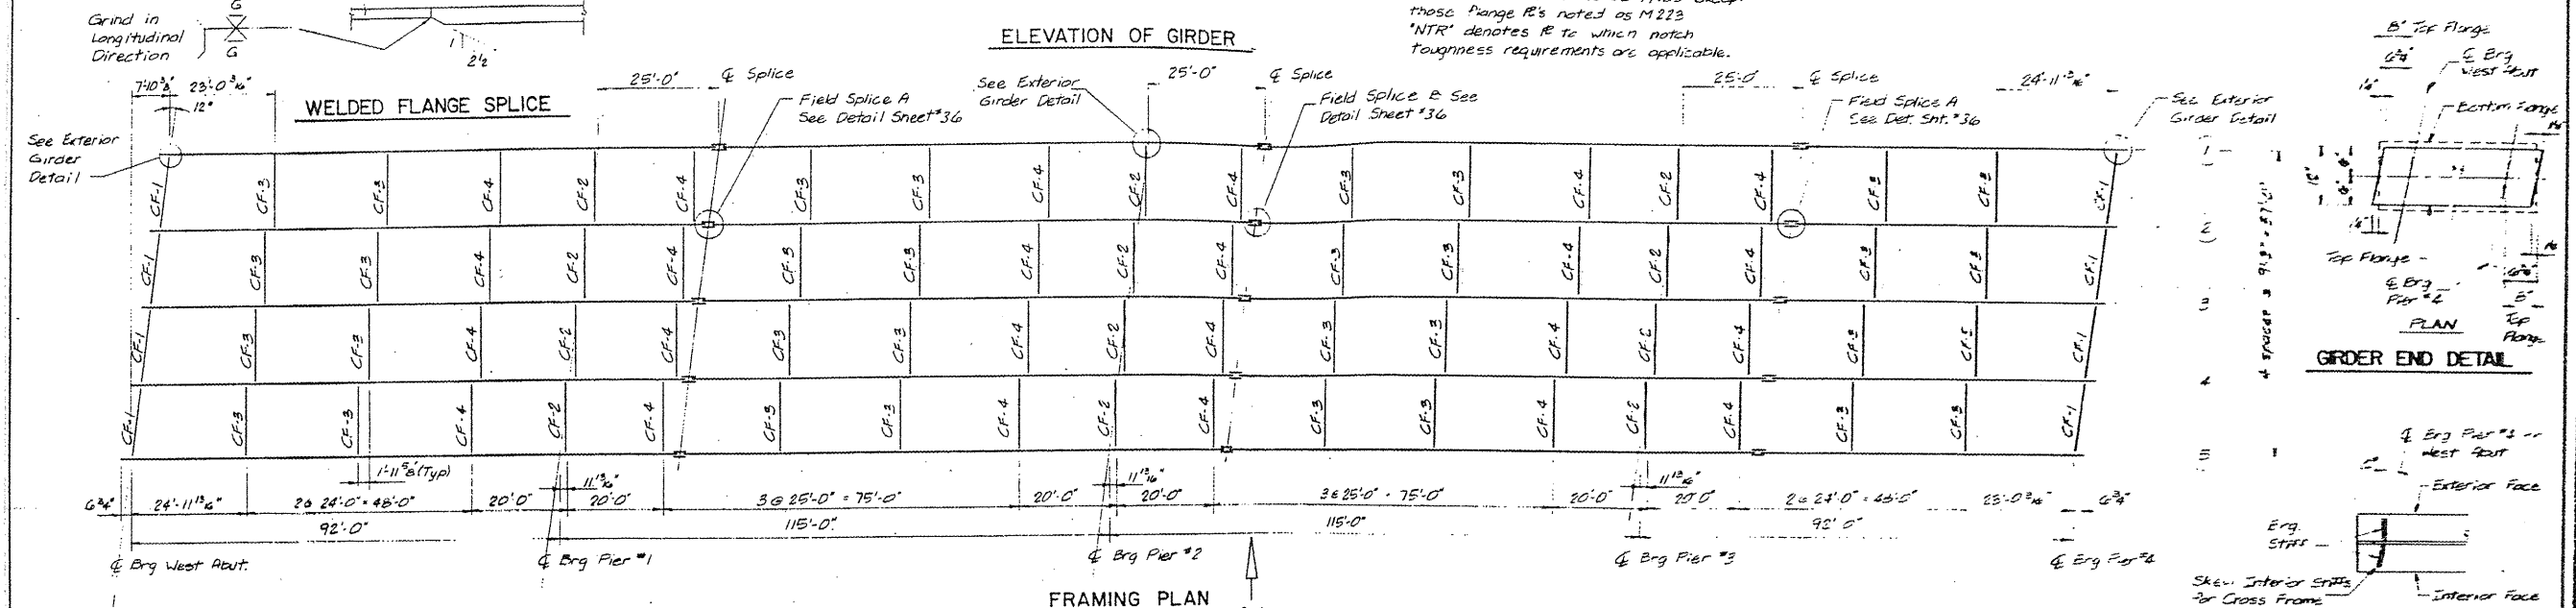 those flange ℞'s noted as M223
"NTR" denotes ℞ to which notch
toughness requirements are applicable.
Grind in
Longitudinal
Direction
G
G
1
2½
ELEVATION OF GIRDER
WELDED FLANGE SPLICE
7'-10⅜"
23'-0 3/16"
12"
25'-0"
℄ Splice
Field Splice A
See Detail Sheet #36
See Exterior
Girder Detail
25'-0"
℄ Splice
Field Splice B See
Detail Sheet #36
25'-0"
℄ Splice
24'-11 13/16"
Field Splice A
See Det. Sht. #36
See Exterior
Girder Detail
See Exterior
Girder
Detail
CF-1 CF-3 CF-3 CF-4 CF-2 CF-4 CF-3 CF-3 CF-4 CF-2 CF-4 CF-3 CF-3 CF-4 CF-2 CF-4 CF-3 CF-3 CF-1
CF-1 CF-3 CF-3 CF-4 CF-2 CF-4 CF-3 CF-3 CF-4 CF-2 CF-4 CF-3 CF-3 CF-4 CF-2 CF-4 CF-3 CF-3 CF-1
CF-1 CF-3 CF-3 CF-4 CF-2 CF-4 CF-3 CF-3 CF-4 CF-2 CF-4 CF-3 CF-3 CF-4 CF-2 CF-4 CF-3 CF-3 CF-1
CF-1 CF-3 CF-3 CF-4 CF-2 CF-4 CF-3 CF-3 CF-4 CF-2 CF-4 CF-3 CF-3 CF-4 CF-2 CF-4 CF-3 CF-3 CF-1
1
2
3
4
5
1'-11⅝" (Typ)
11 13/16"
11 13/16"
11 13/16"
6¾" 24'-11 13/16" 2@ 24'-0" = 48'-0" 20'-0" 20'-0" 3@ 25'-0" = 75'-0" 20'-0" 20'-0" 3@ 25'-0" = 75'-0" 20'-0" 20'-0" 2@ 24'-0" = 48'-0" 23'-0 3/16" 6¾"
92'-0" 115'-0" 115'-0" 92'-0"
℄ Brg West Abut.
℄ Brg Pier #1
℄ Brg Pier #2
℄ Brg Pier #3
℄ Brg Pier #4
FRAMING PLAN
8" Top Flange
6¾"
℄ Brg
West Abut
Bottom Flange
Top Flange
℄ Brg
Pier #4
6¾"
8"
Top
Flange
PLAN
GIRDER END DETAIL
West Abut
Exterior Face
Brg.
Stiff
Skew Interior Stiffs
For Cross Frame
Interior Face